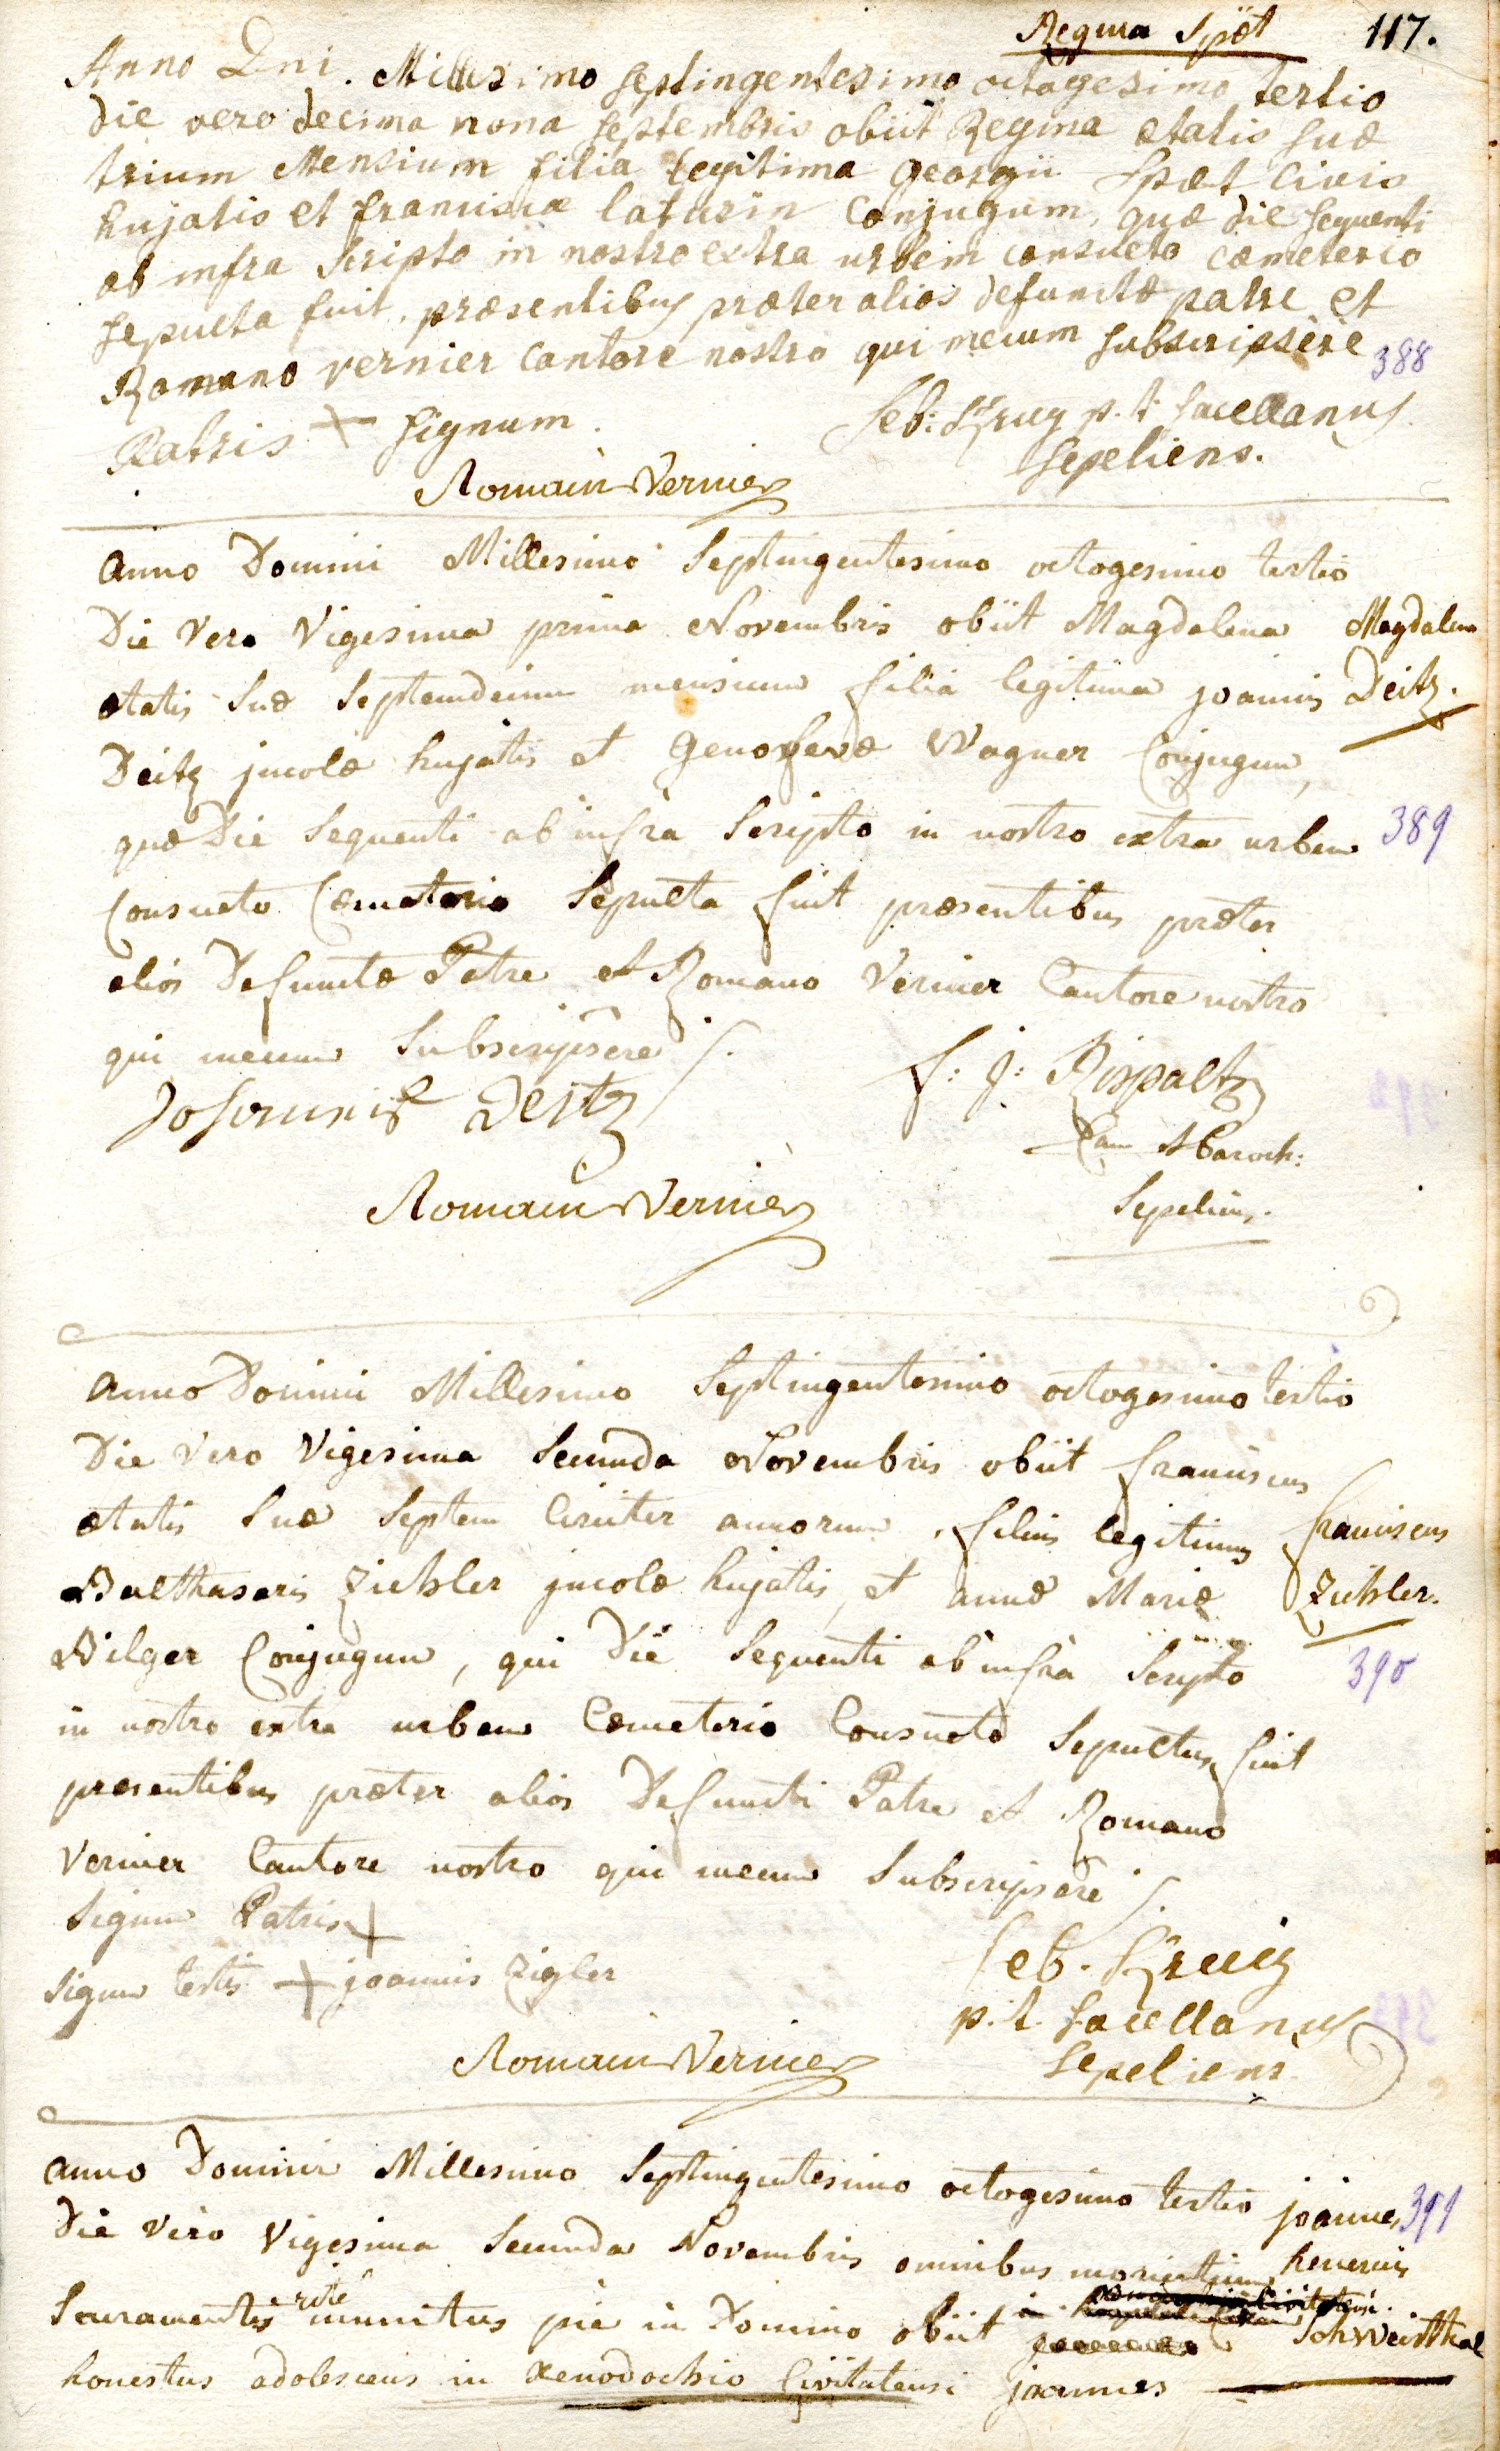 Regina Spöt 117.
Anno Dni. Millesimo septingentesimo octogesimo tertio
die vero decima nona septembris obiit Regina ætatis suæ
trium Mensium filia legitima georgii Spæt Civis
hujatis et franciscæ laturin Conjugum, quæ die sequenti
ab infra scripto in nostro extra urbem consueto cæmeterio
sepulta fuit, præsentibus præter alios defunctæ patre et
Romano vernier Cantore nostro qui mecum subscripsère 388
Patris + signum. Seb: Krug p. t. sacellanus
sepeliens.
Romain Vernier
anno Domini Millesimo Septingentesimo octogesimo tertio
Die Vero Vigesima prima Novembris obiit Magdalena Magdalena
ætatis suæ Septemdecim mensium filia legitima joannis Deitz.
Deitz jncolæ hujatis et Genofevæ Wagner Conjugum,
quæ Die Sequenti ab infra Scripto in nostro extra urbem 389
Consueto Cæmeterio Sepulta fuit præsentibus præter
alios Defunctæ Patre et Romano Vernier Cantore nostro
qui mecum Subscripsêre /.
Johannis Deitz F: J: Rispaltz
Can Paroch:
Sepeliens.
Romain Vernier
anno Domini Millesimo Septingentesimo octogesimo tertio
Die Vero Vigesima Secunda Novembris obiit franciscus
ætatis suæ Septem Circiter annorum, filius legitimus franciscus
Balthasaris Ziehler jncolæ hujatis, et annæ Mariæ Ziehler.
Bilger Conjugum, qui Die Sequenti ab infra Scripto 390
in nostro extra urbem Cæmeterio Consueto Sepultus fuit
præsentibus præter alios Defuncti Patre et Romano
Vernier Cantore nostro qui mecum Subscripsêre /.
Signum Patris +
Signum testis + joannis Zigler Seb. Krug
p. t. sacellanus
Romain Vernier sepeliens
anno Domini Millesimo Septingentesimo octogesimo tertio joannes 391
Die Vero Vigesima Secunda Novembris omnibus morientium
Sacramentis ritè munitus piè in Domino obiit Schweitthal
honestus adolescens in Xenodochio Civitatensi joannes